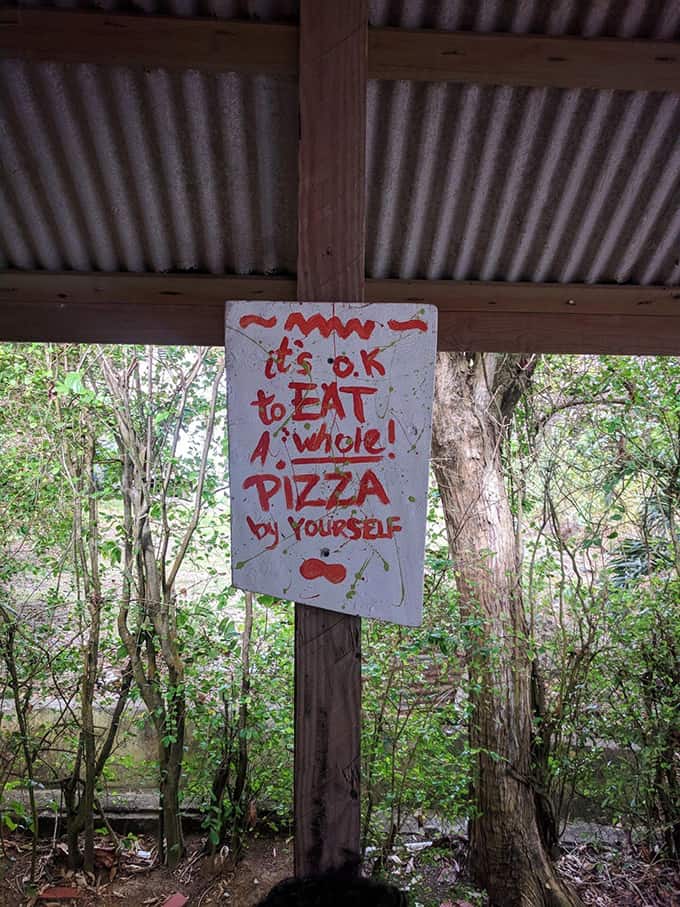 it's o.K
to EAT
A "whole!
PIZZA
by YOURSELF